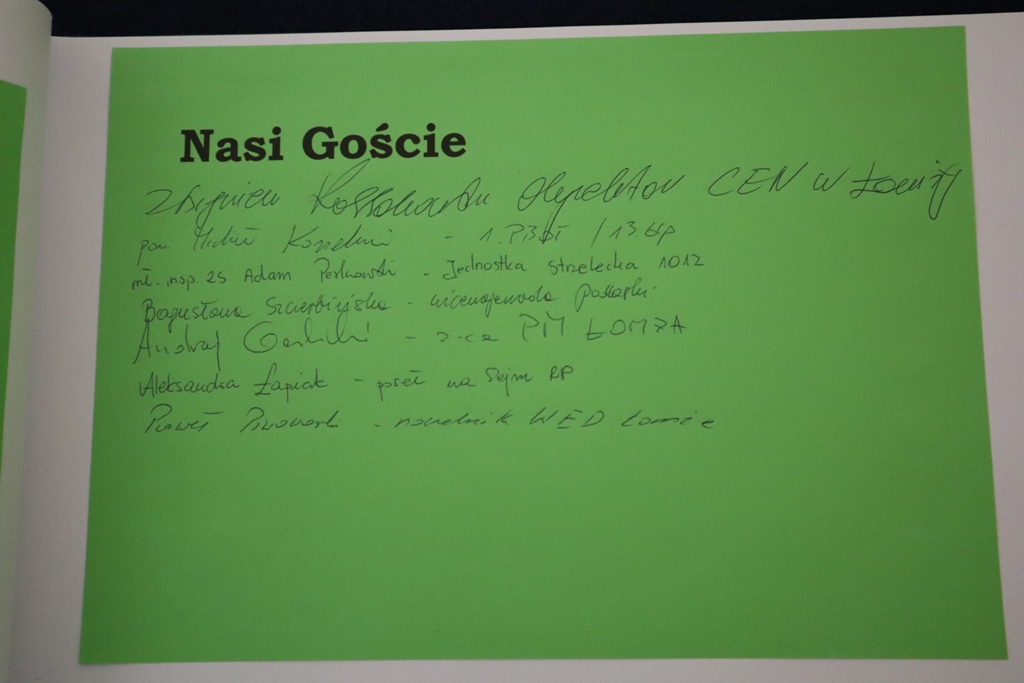 Nasi Goście
Zbigniew dyrektor CEN w Łomży
Michał - 1.PBOT / 13.blp
mł. insp. ZS Adam Perkowski - Jednostka strzelecka 1012
Bogusława Szczerbińska - wicewojewoda podlaski
Andrzej Garlicki - z-ca PM ŁOMŻA
Aleksandra Łapiak - poseł na Sejm RP
Paweł - naczelnik WED Łomża